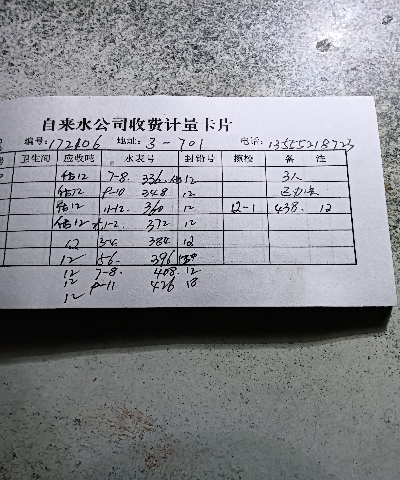 自来水公司收费计量卡片
编号:172106 地址:3-701 电话:13555218723
卫生间 应收吨 水表号 封铅号 换校 备注
估12 7-8. 336 12 3人
估12 9-10 348 12
估12 11-12. 360 12 12-1 438. 12
估12 1-2 372 12
62 3-4 384 12
12 5-6- 396
12 7-8. 408. 12
12 9-11 426 18
12